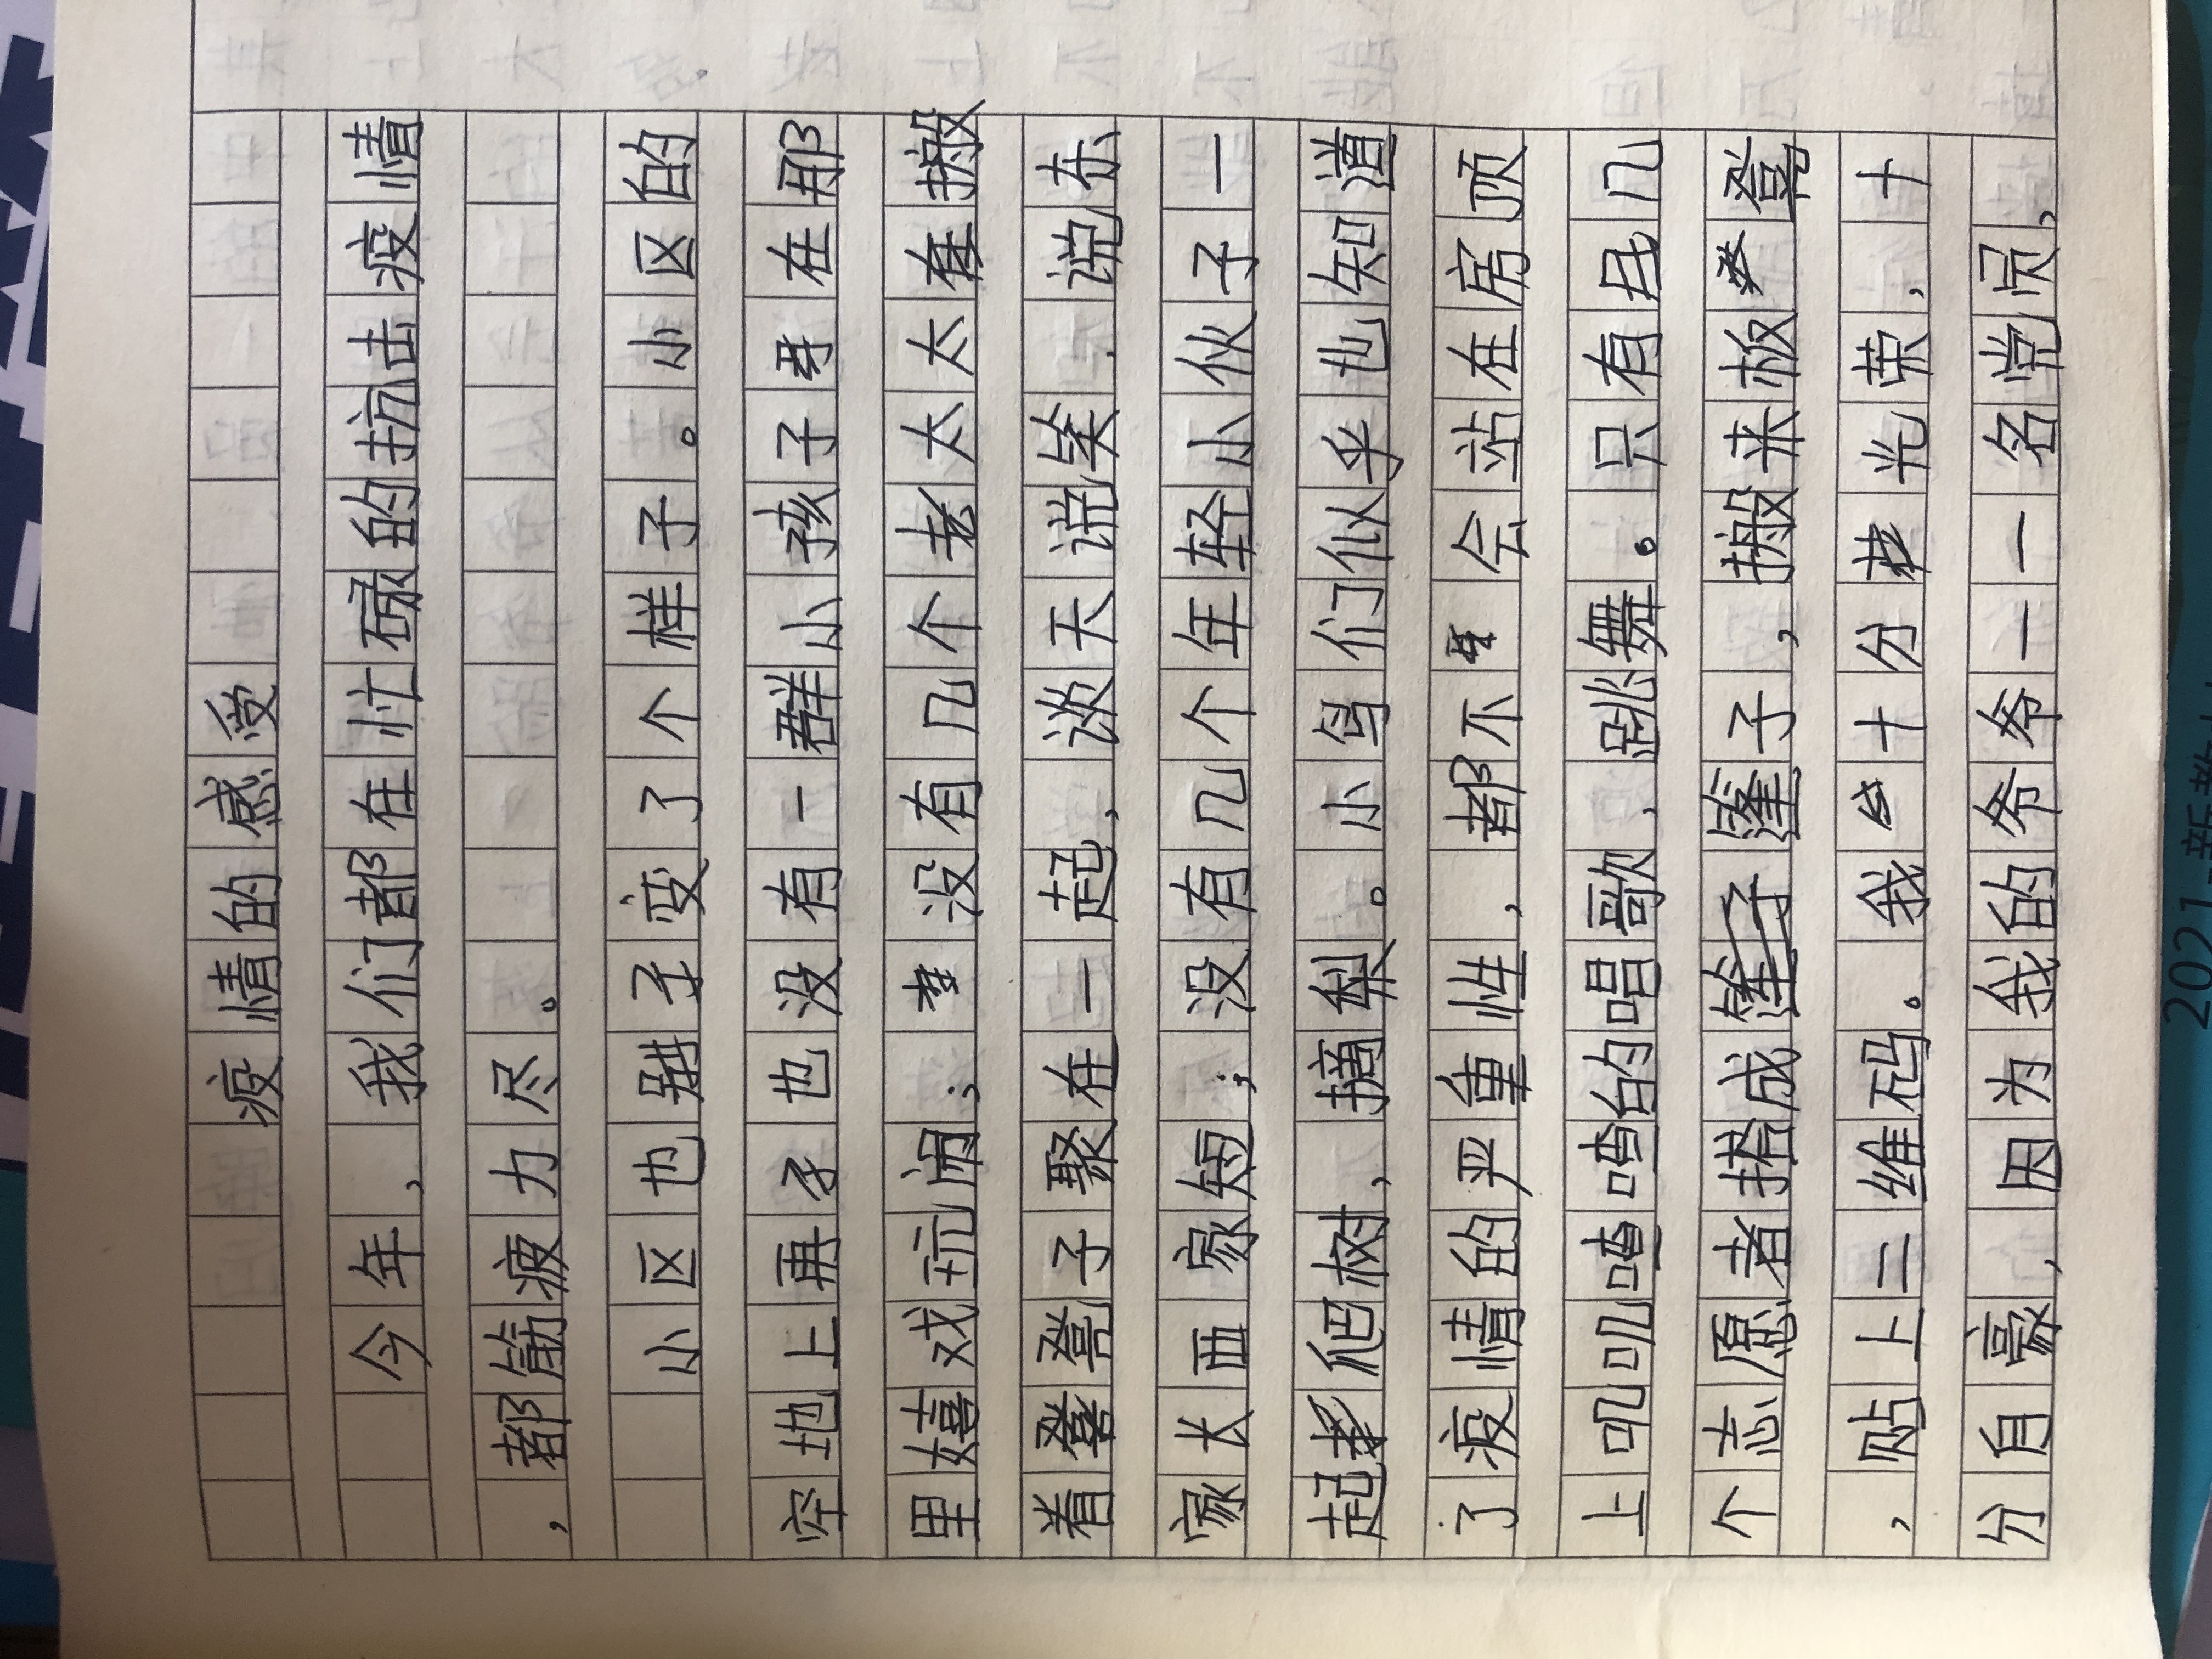 疫情的感受
今年，我们都在忙碌的抗击疫情
，都筋疲力尽。
小区也变了个样子。小区的
空地上再也没有一群小孩子在那
里嬉戏玩闹；没有几个老太太搬
着凳子聚在一起，谈天说笑．说东
家长西家短；没有几个年轻小伙子一
起爬树，摘梨。小鸟们似乎也知道
了疫情的严重性，都不会站在房顶
上叽叽喳喳的唱歌，跳舞。只有几
个志愿者搭成篷子，搬来板凳
，贴上二维码。我十分光荣，十
分自豪，因为我的爷爷一一名党员，
2021